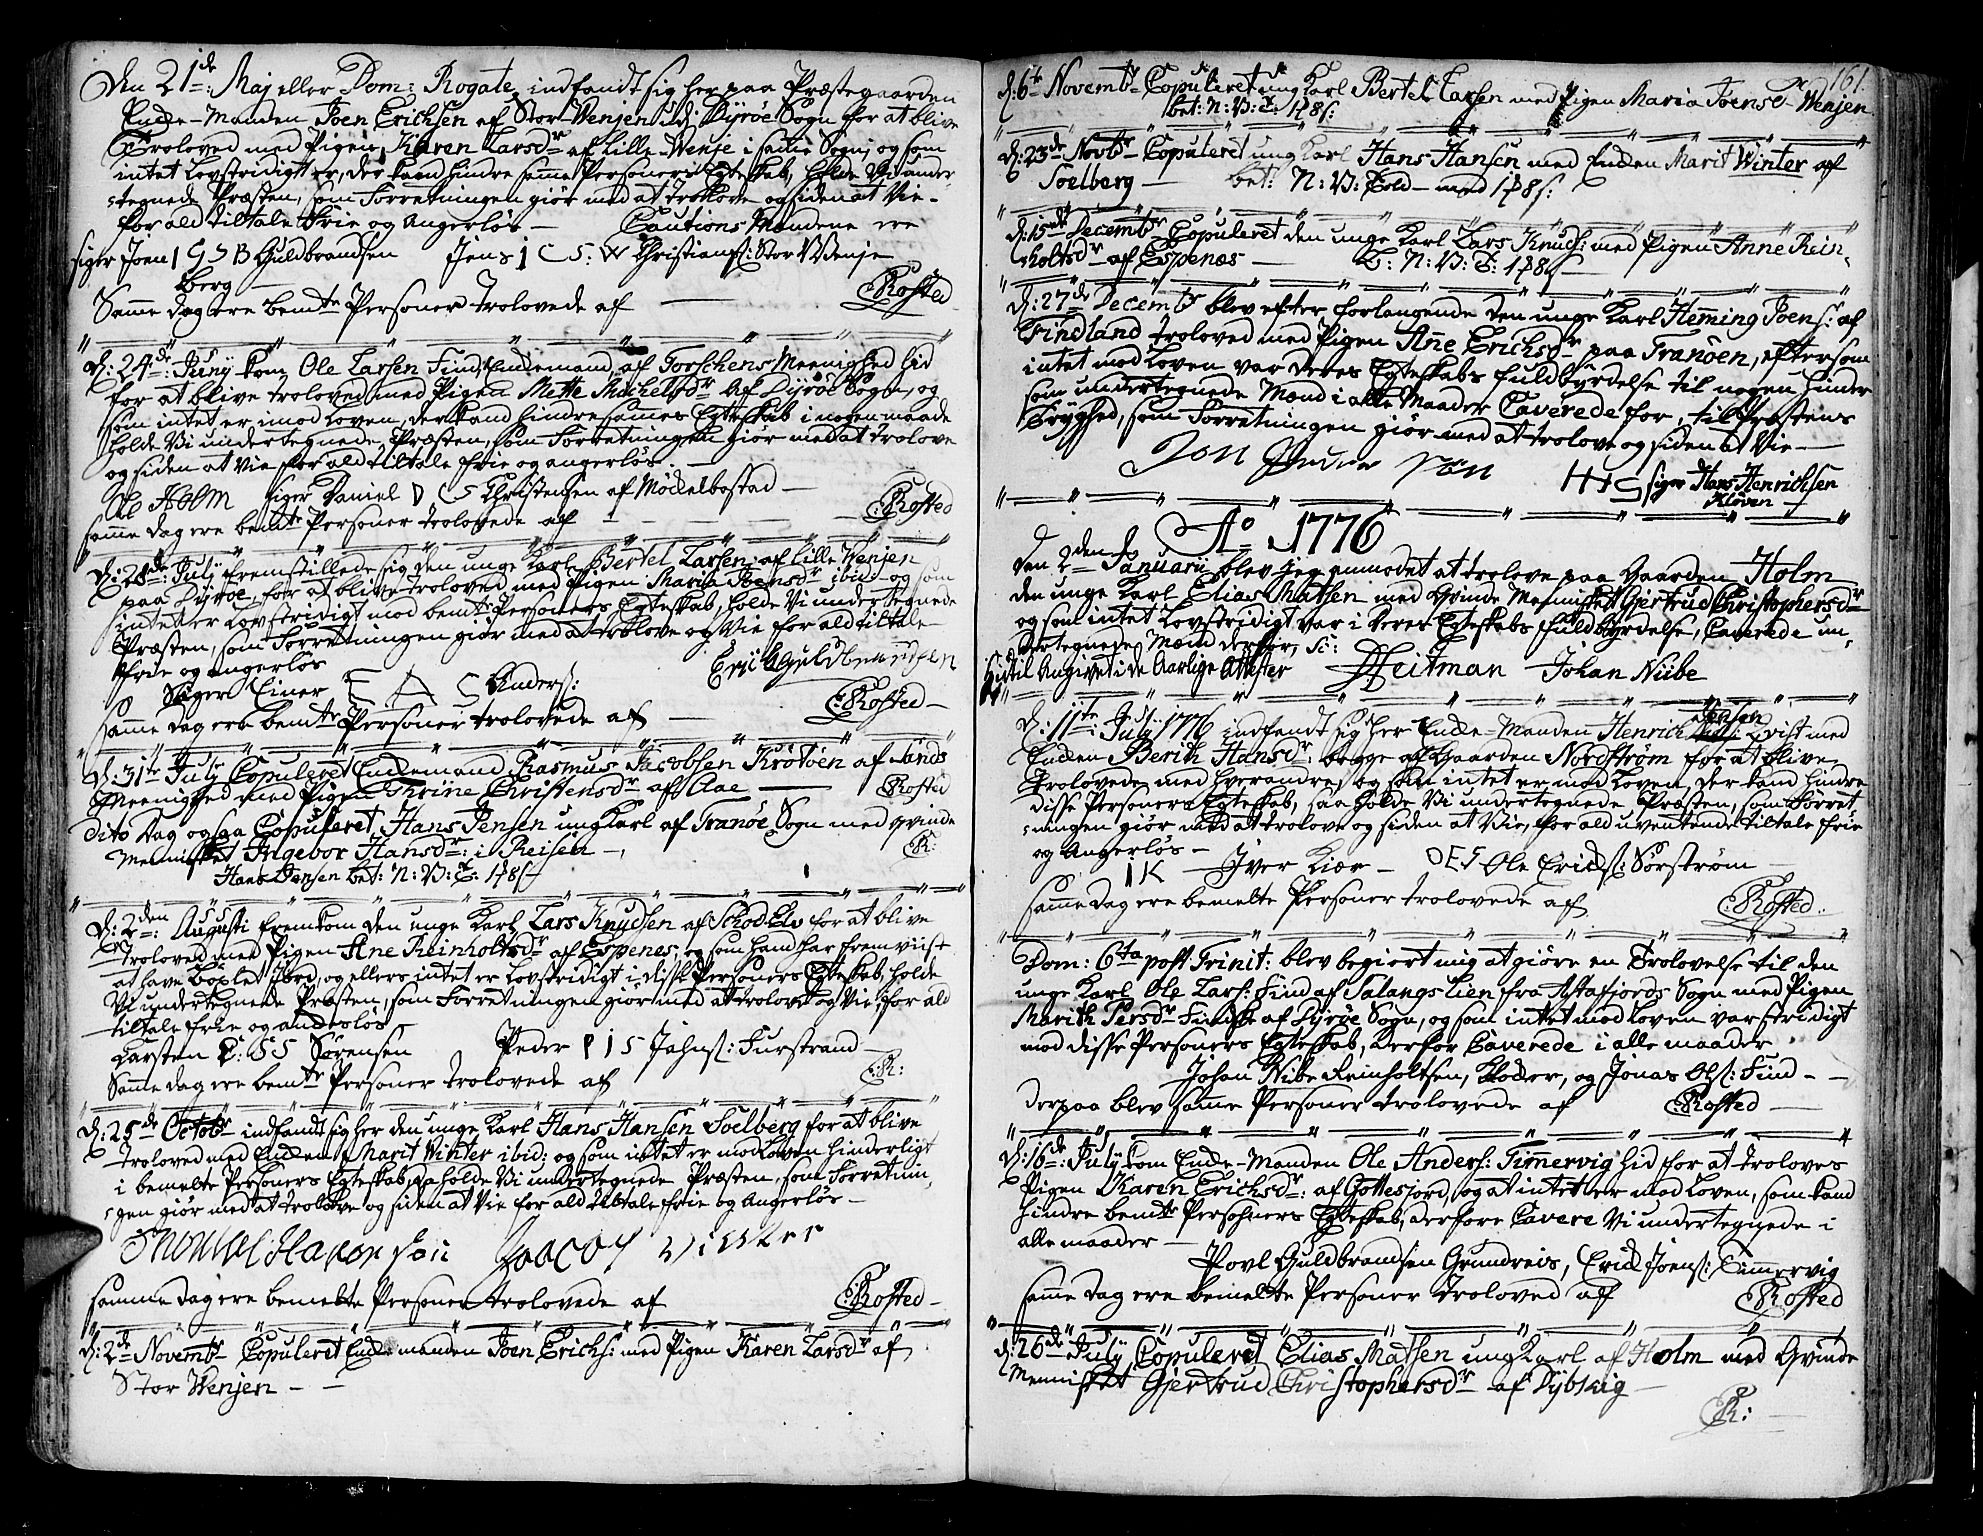 Den 21de: Maj eller Dom: Rogate, indfandt sig her paa Præstegaarden
Enke-Manden Joen Erichsen af Stor-Wenjen udi Dyrøe Sogn for at blive
Troloved med Pigen Karen Larsdr af Lille-Wenje i samme Sogn, og som
intet Lovstridigt er, der kand hindre samme Personers Egteskab, holde Vi under-
tegnede Præsten, som Forretningen giør med at trolove og siden at Vie
for ald tiltale frie og Angerløs — Cautions Mændene ere
siger Joen I G S B Guldbrandsen Jens I C S: W Christians: Stor Wenje
Berg —
Samme dag ere bemte Personer trolovede af — C: Rosted
D: 24de: Juny kom Ole Larsen Find Enkemand af Torschens Meenighed hid
for at blive troloved med Pigen Mette Michelsdr af Dyrøe Sogn, og
som intet er imod Loven, der kand hindre sammes Egteskab i nogen maade
holde Vi undertegnede Præsten, som Forretningen giør med at trolove
og siden at Vie for ald tiltale frie og angerløs. —
Ole Holm siger Daniel D C S Christensen af Möckelbostad —
samme dag ere bemte Personer trolovede af — C: Rosted
D: 28de: July fremstillede sig den unge Karl Bertel Larsen af Lille Wenjen
paa Dyrøe, for at blive troloved med Pigen Maria Joensdr ibid: og som
intet er Lovstridigt mod bemte Personers Egteskab, holde Vi undertegnede
Præsten, som Forretningen giør med at trolove og Vie for ald tiltale
frie og angerløs Erich Guldbrandsen
Siger Einer E A S Anders:
samme dag ere bemte Personer trolovede af — C: Rosted —
D: 31te July Copuleret Enkemand Rasmus Jacobsen Krötöen af Sands
Meenighed med Pigen Thrine Christensdr af Aae — C Rosted
Dito Dag ogsaa Copuleret Hans Jensen ung Karl af Tranøe Sogn med qvinde
Mennisket Ingebor Hansdr: i Reisen — C R:
Hans Jensen bet: N: B: T: 1781
D: 2den: Augusti fremkom den unge Karl Lars Knudsen af Schod Elv for at blive
Troloved med Pigen Ane Reinholtsdr af Espenes, og som hand har fremviist
at have böxlet Jord, og ellers intet er Lovstridigt i disse Personers Egteskab, holde
Vi undertegnede Præsten, som Forretningen giør med at trolove og Vie, for ald
tiltale frie og angerløs
Karsten C: S S Sörensen Peder P I S Jahns: Furstrand —
Samme dag ere bemte Personer trolovede af C: R:
D: 25de Octobr indfandt sig her den unge Karl Hans Hansen Soelberg for at blive
troloved med Enken Marit Winter ibid: og som intet er mod Loven hinderligt
i bemelte Personers Egteskab, saa holde Vi undertegnede Præsten, som Forretnin-
gen giør med at trolove og siden at Vie for ald tiltale frie og Angerløs —
samme dag ere bemelte Personer trolovede af C: Rosted —
D: 2de Novembr Copuleret Enkemanden Joen Erichs: med Pigen Karen Larsdr af
Stor Wenjen — —
161.
D: 6te Novembr Copuleret ung Karl Bertel Larsen med Pigen Maria Joensdr Wenjen
bet: N: B: T: 1781:
D: 23de Novbr Copuleret ung Karl Hans Hansen med Enken Marit Winter af
Soelberg — bet: N: B: Told — med 1781:
D: 15de Decembr Copuleret den unge Karl Lars Knuds: med Pigen Anne Rein-
holtsdr af Espenæs — B: N: B: T: 1781
D: 27de Decembr blev efter forlangende den unge Karl Hemming Joens: af
Trindland troloved med Pigen Ane Erichsdr paa Tranöen, eftersom
intet mod Loven var deres Egteskabs fuldbyrdelse til nogen hinder
som undertegnede Mænd i alle Maader Caverede for, til Præstens
Tryghed, som Forretningen giør med at trolove og siden at Vie —
H H S siger Hans Henrichsen
Klöven —
Ao 1776
Den 2den Januarii blev jeg anmodet at trolove paa Gaarden Holm
den unge Karl Elias Matsen med Qvinde Mennisket Gjertrud Christophersdr
og som intet Lovstridigt var i deres Egteskabs fuldbyrdelse, Caverede un-
dertegnede Mænd derfor, sc:
Hidtil Angivet i de Aarlige Attester Heitman Johan Niibe
D: 11te: July 1776 indfandt sig her Enke-Manden Henrich Jensen Qvist med
Enken Berith Hansdr: begge af Gaarden Nordstrøm for at blive
Trolovede med hverandre, og som intet er mod Loven, der kand hindre
disse Personers Egteskab, saa holde Vi undertegnede Præsten, som Forret-
ningen giør med at trolove og siden at Vie, for ald uventende tiltale frie
og Angerløs —
I K — Iver Kiær — O E S Ole Erichs: Sörström —
samme dag ere bemelte Personer trolovede af C: Rosted.
Dom: 6ta post Trinit: blev begiert mig at giøre en Trolovelse til den
unge Karl Ole Lars: Find af Salangs Lien fra Astafjords Sogn med Pigen
Marith Persdr Find af Dyröe Sogn, og som intet mod Loven var stridigt
mod disse Personers Egteskab, derfor Caverede i alle maader
Johan Nibe Reinholtsen, Klocker, og Jonas Ols: Find — —
derpaa blev samme Personer trolovede af C: Rosted —
D: 16de: July kom Enke-Manden Ole Anders: Timmervig hid for at troloves
Pigen Karen Erichsdr: af Gottesjord, og at intet er mod Loven, som kand
hindre bemte Personers Egteskab, derfore Cavere Vi undertegnede i
alle maader —
Povl Guldbrandsen Grundreis, Erich Joens: Timmervig
samme dag ere bemelte Personer trolovede af C: Rosted
D: 26de July Copuleret Elias Matsen ung Karl af Holm med Qvinde
Mennisket Gjertrud Christophersdr af Dybvig —
C R: —